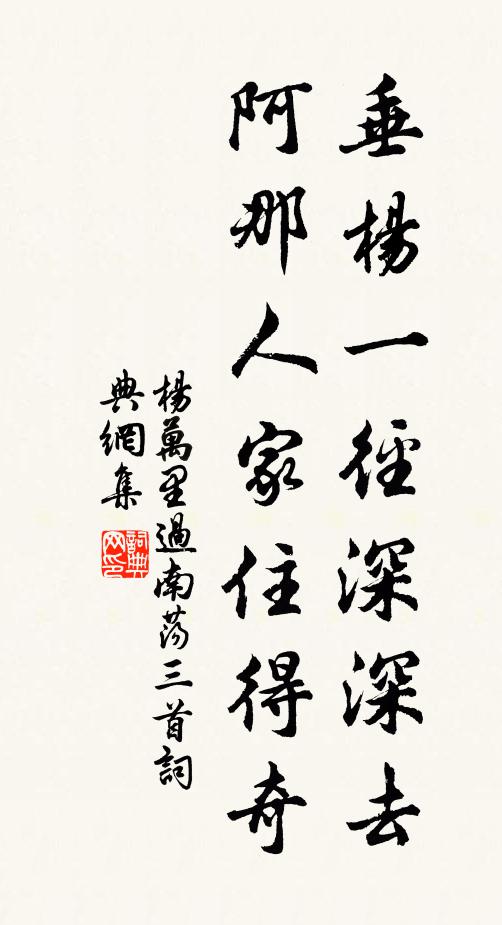 垂楊一徑深深去
阿那人家住得奇
楊萬里過南蕩三首詞
典網集
詞典
网印